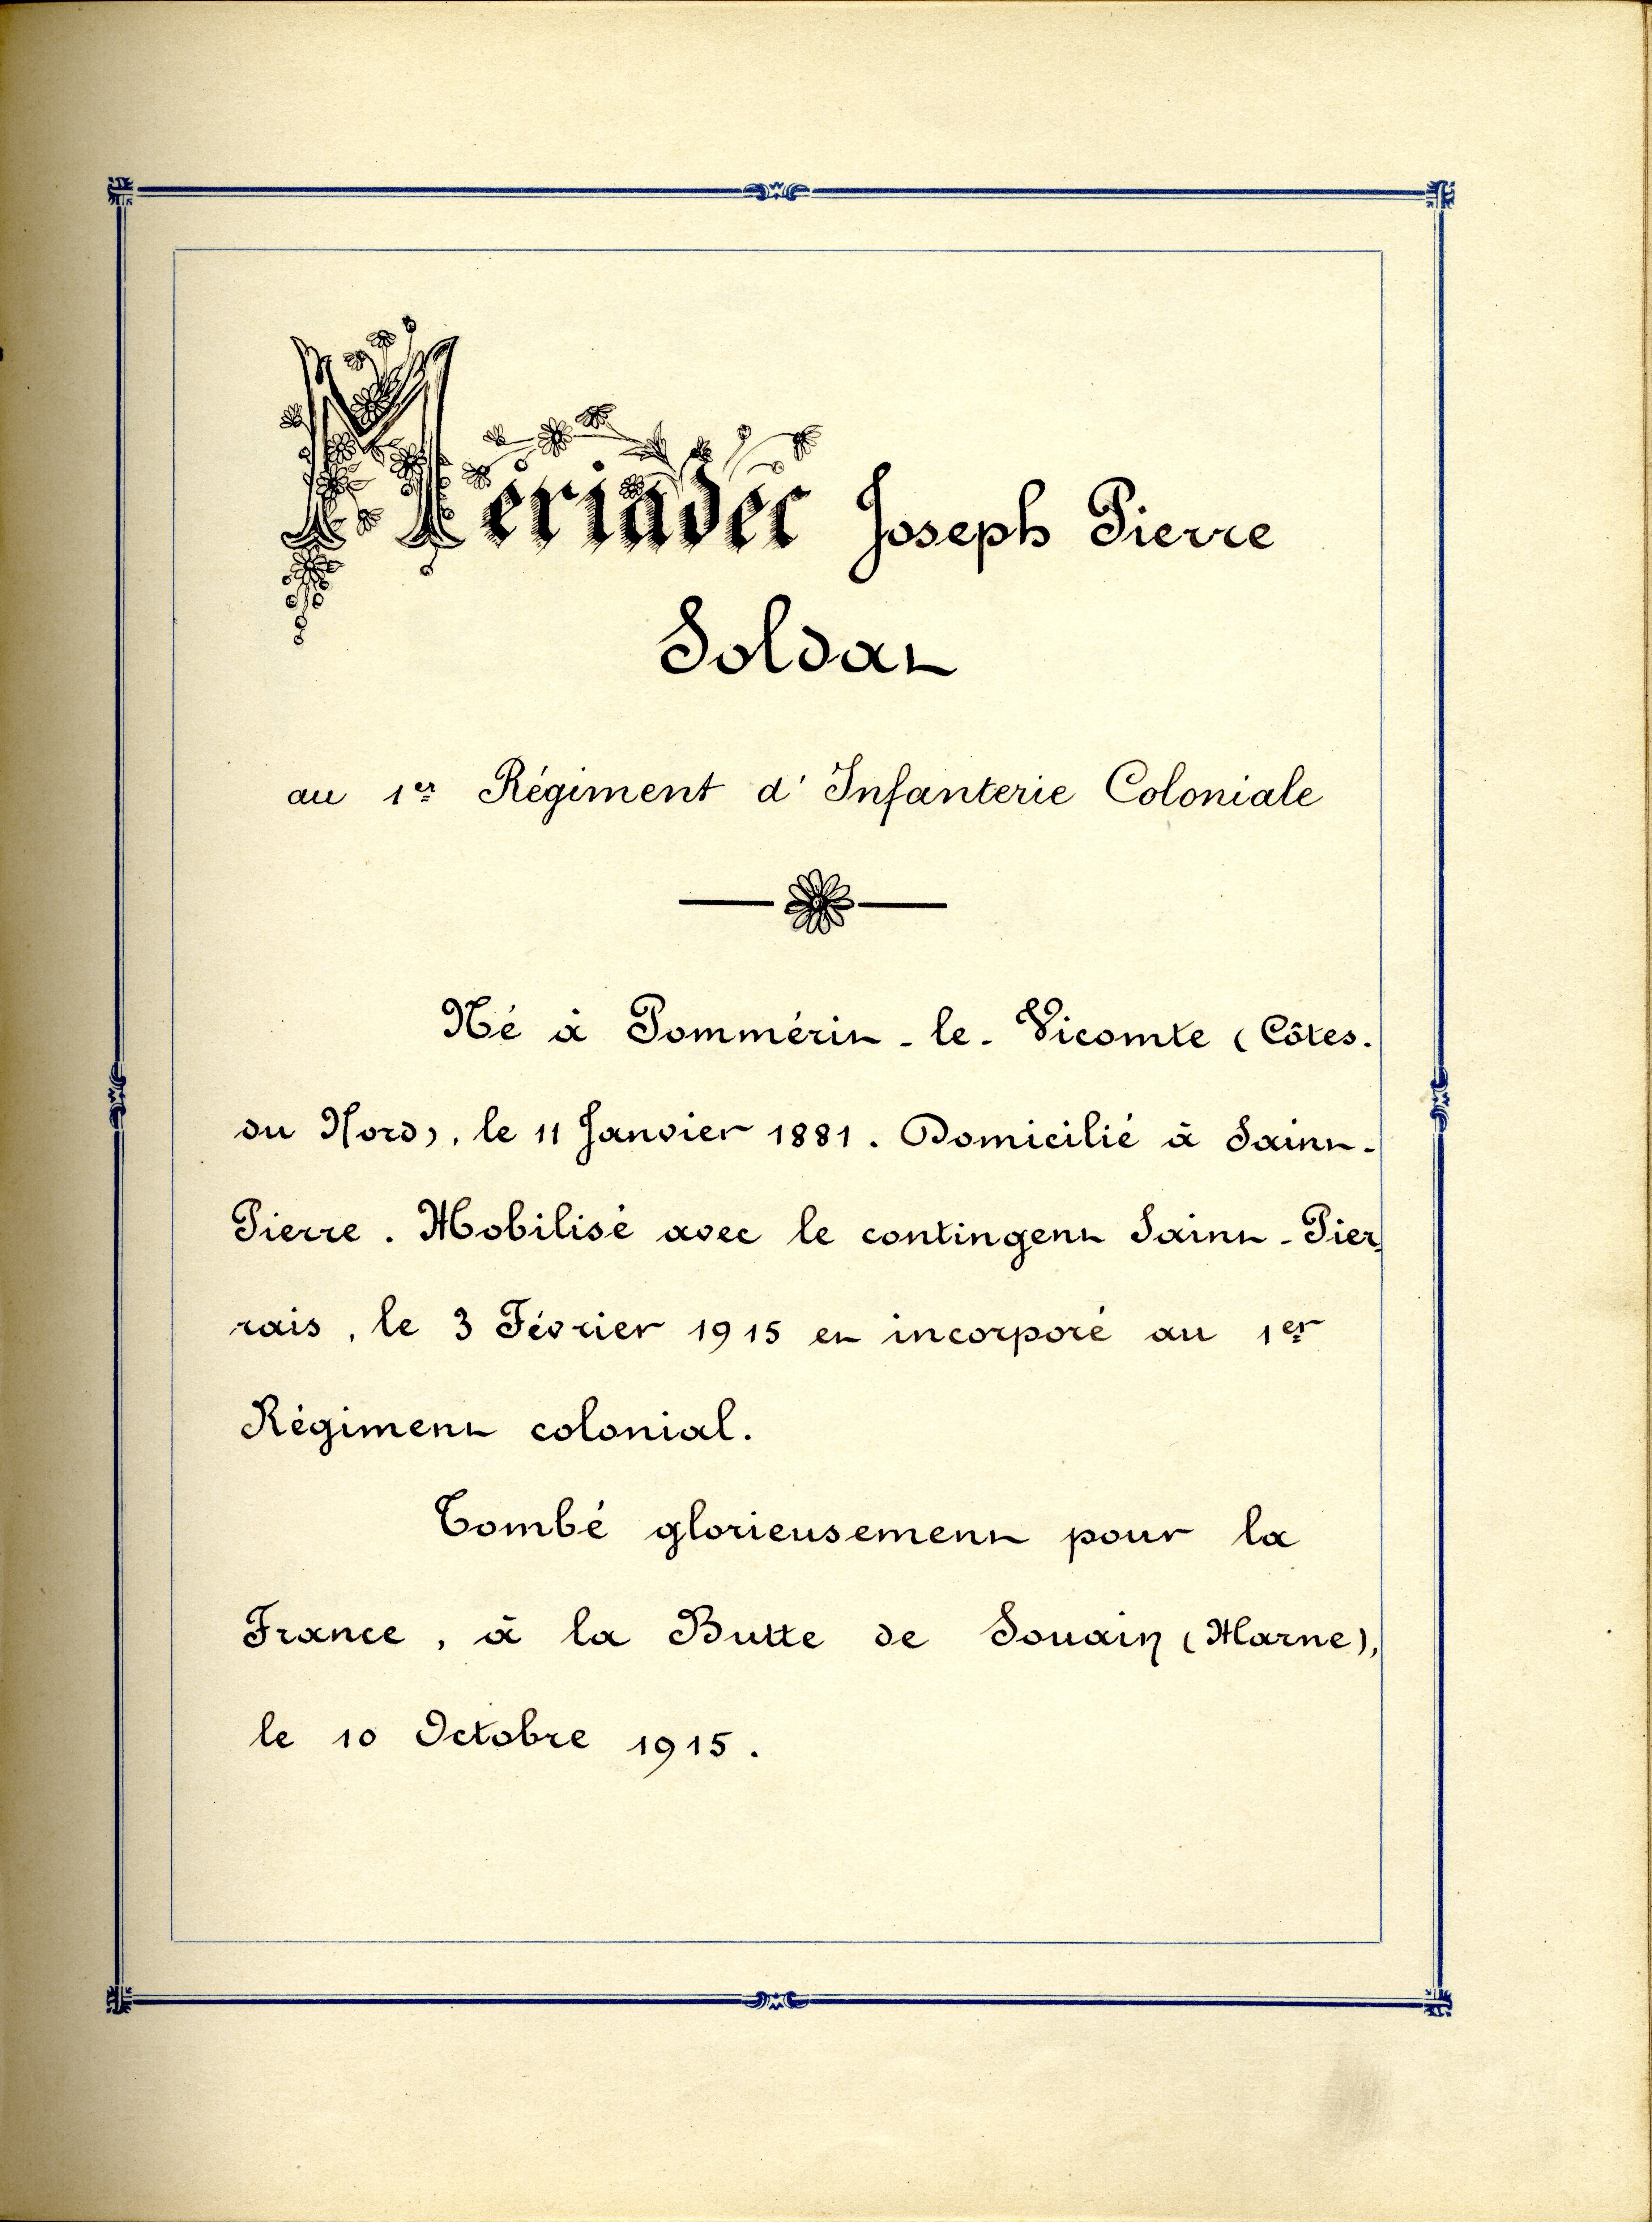 Mériadec Joseph Pierre
Soldat
au 1er Régiment d'Infanterie Coloniale
Né à Pommérit-le-Vicomte (Côtes-
du Nord), le 11 Janvier 1881. Domicilié à Saint-
Pierre. Mobilisé avec le contingent Saint-Pier
rais, le 3 Février 1915 et incorporé au 1er
Régiment colonial.
Tombé glorieusement pour la
France, à la Butte de Souain (Marne),
le 10 Octobre 1915.